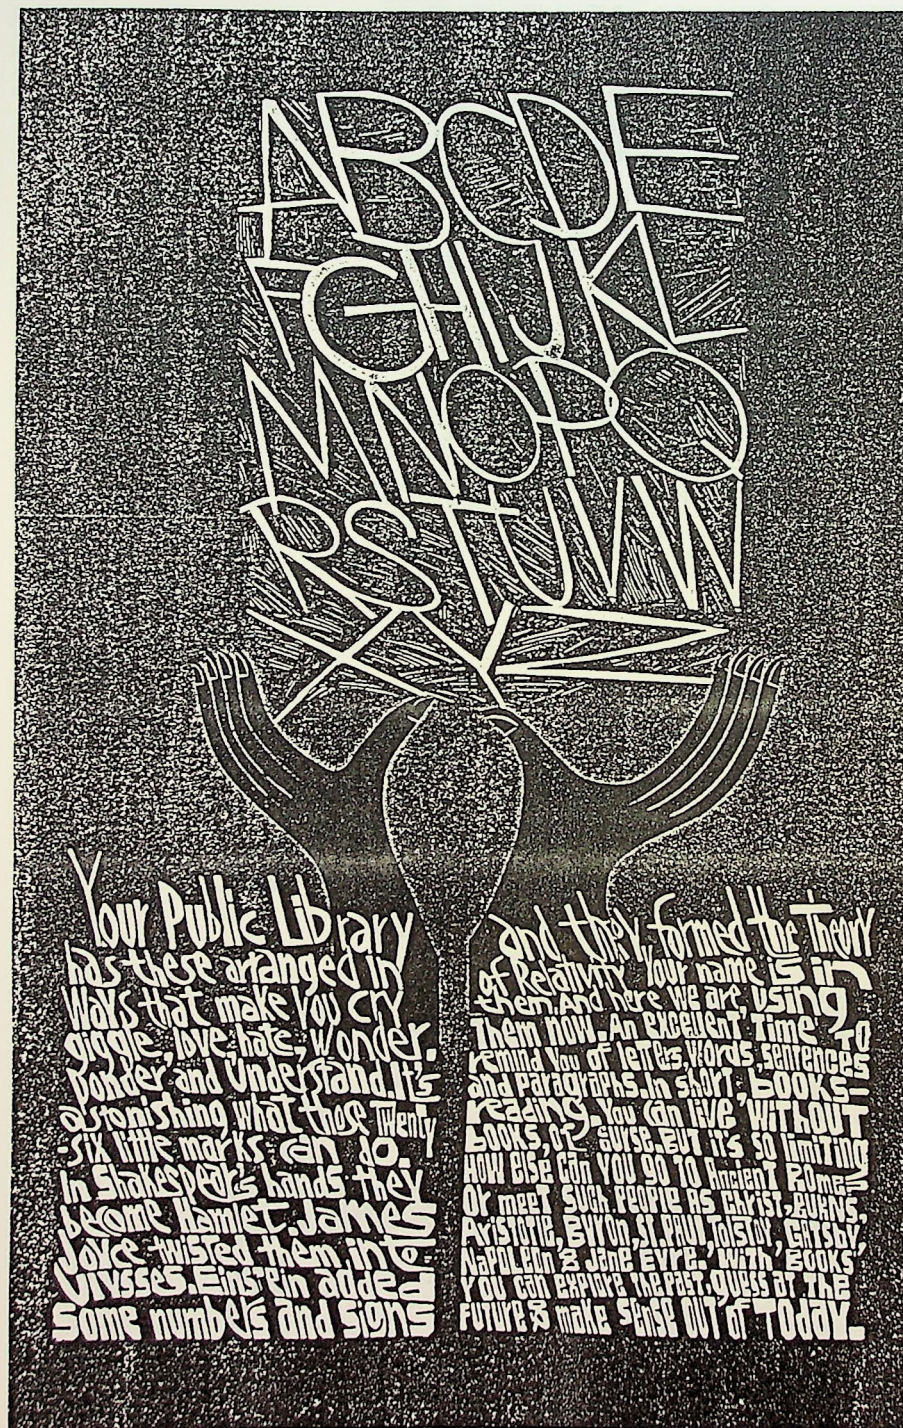 ABCDE
FGHIJKL
MNOPQ
RSTUVW
XYZ
Your Public Library
has these arranged in
Ways that make You cry
giggle, love, hate, wonder,
ponder and Understand. It's
astonishing what those Twenty
-six little marks can do.
In Shakespeare's hands they
become Hamlet. James
Joyce twisted them into
Ulysses. Einstein added
some numbers and signs
and they formed the Theory
of Relativity. Your name is in
them. And here we are, using
Them now. An excellent Time TO
remind You of letters words, sentences
and paragraphs. In short, books=
reading. You can live WITHOUT
books, of course. But it's so limiting
HOW else can YOU go TO Ancient Rome=
Or meet SUCH PEOPLE AS Christ, BURNS,
Aristotle, Byron, ST. Paul, Tolstoy, Gatsby,
Napoleon & Jane Eyre. With Books
You can explore the past, guess at the
Future & make sense OUT of Today.